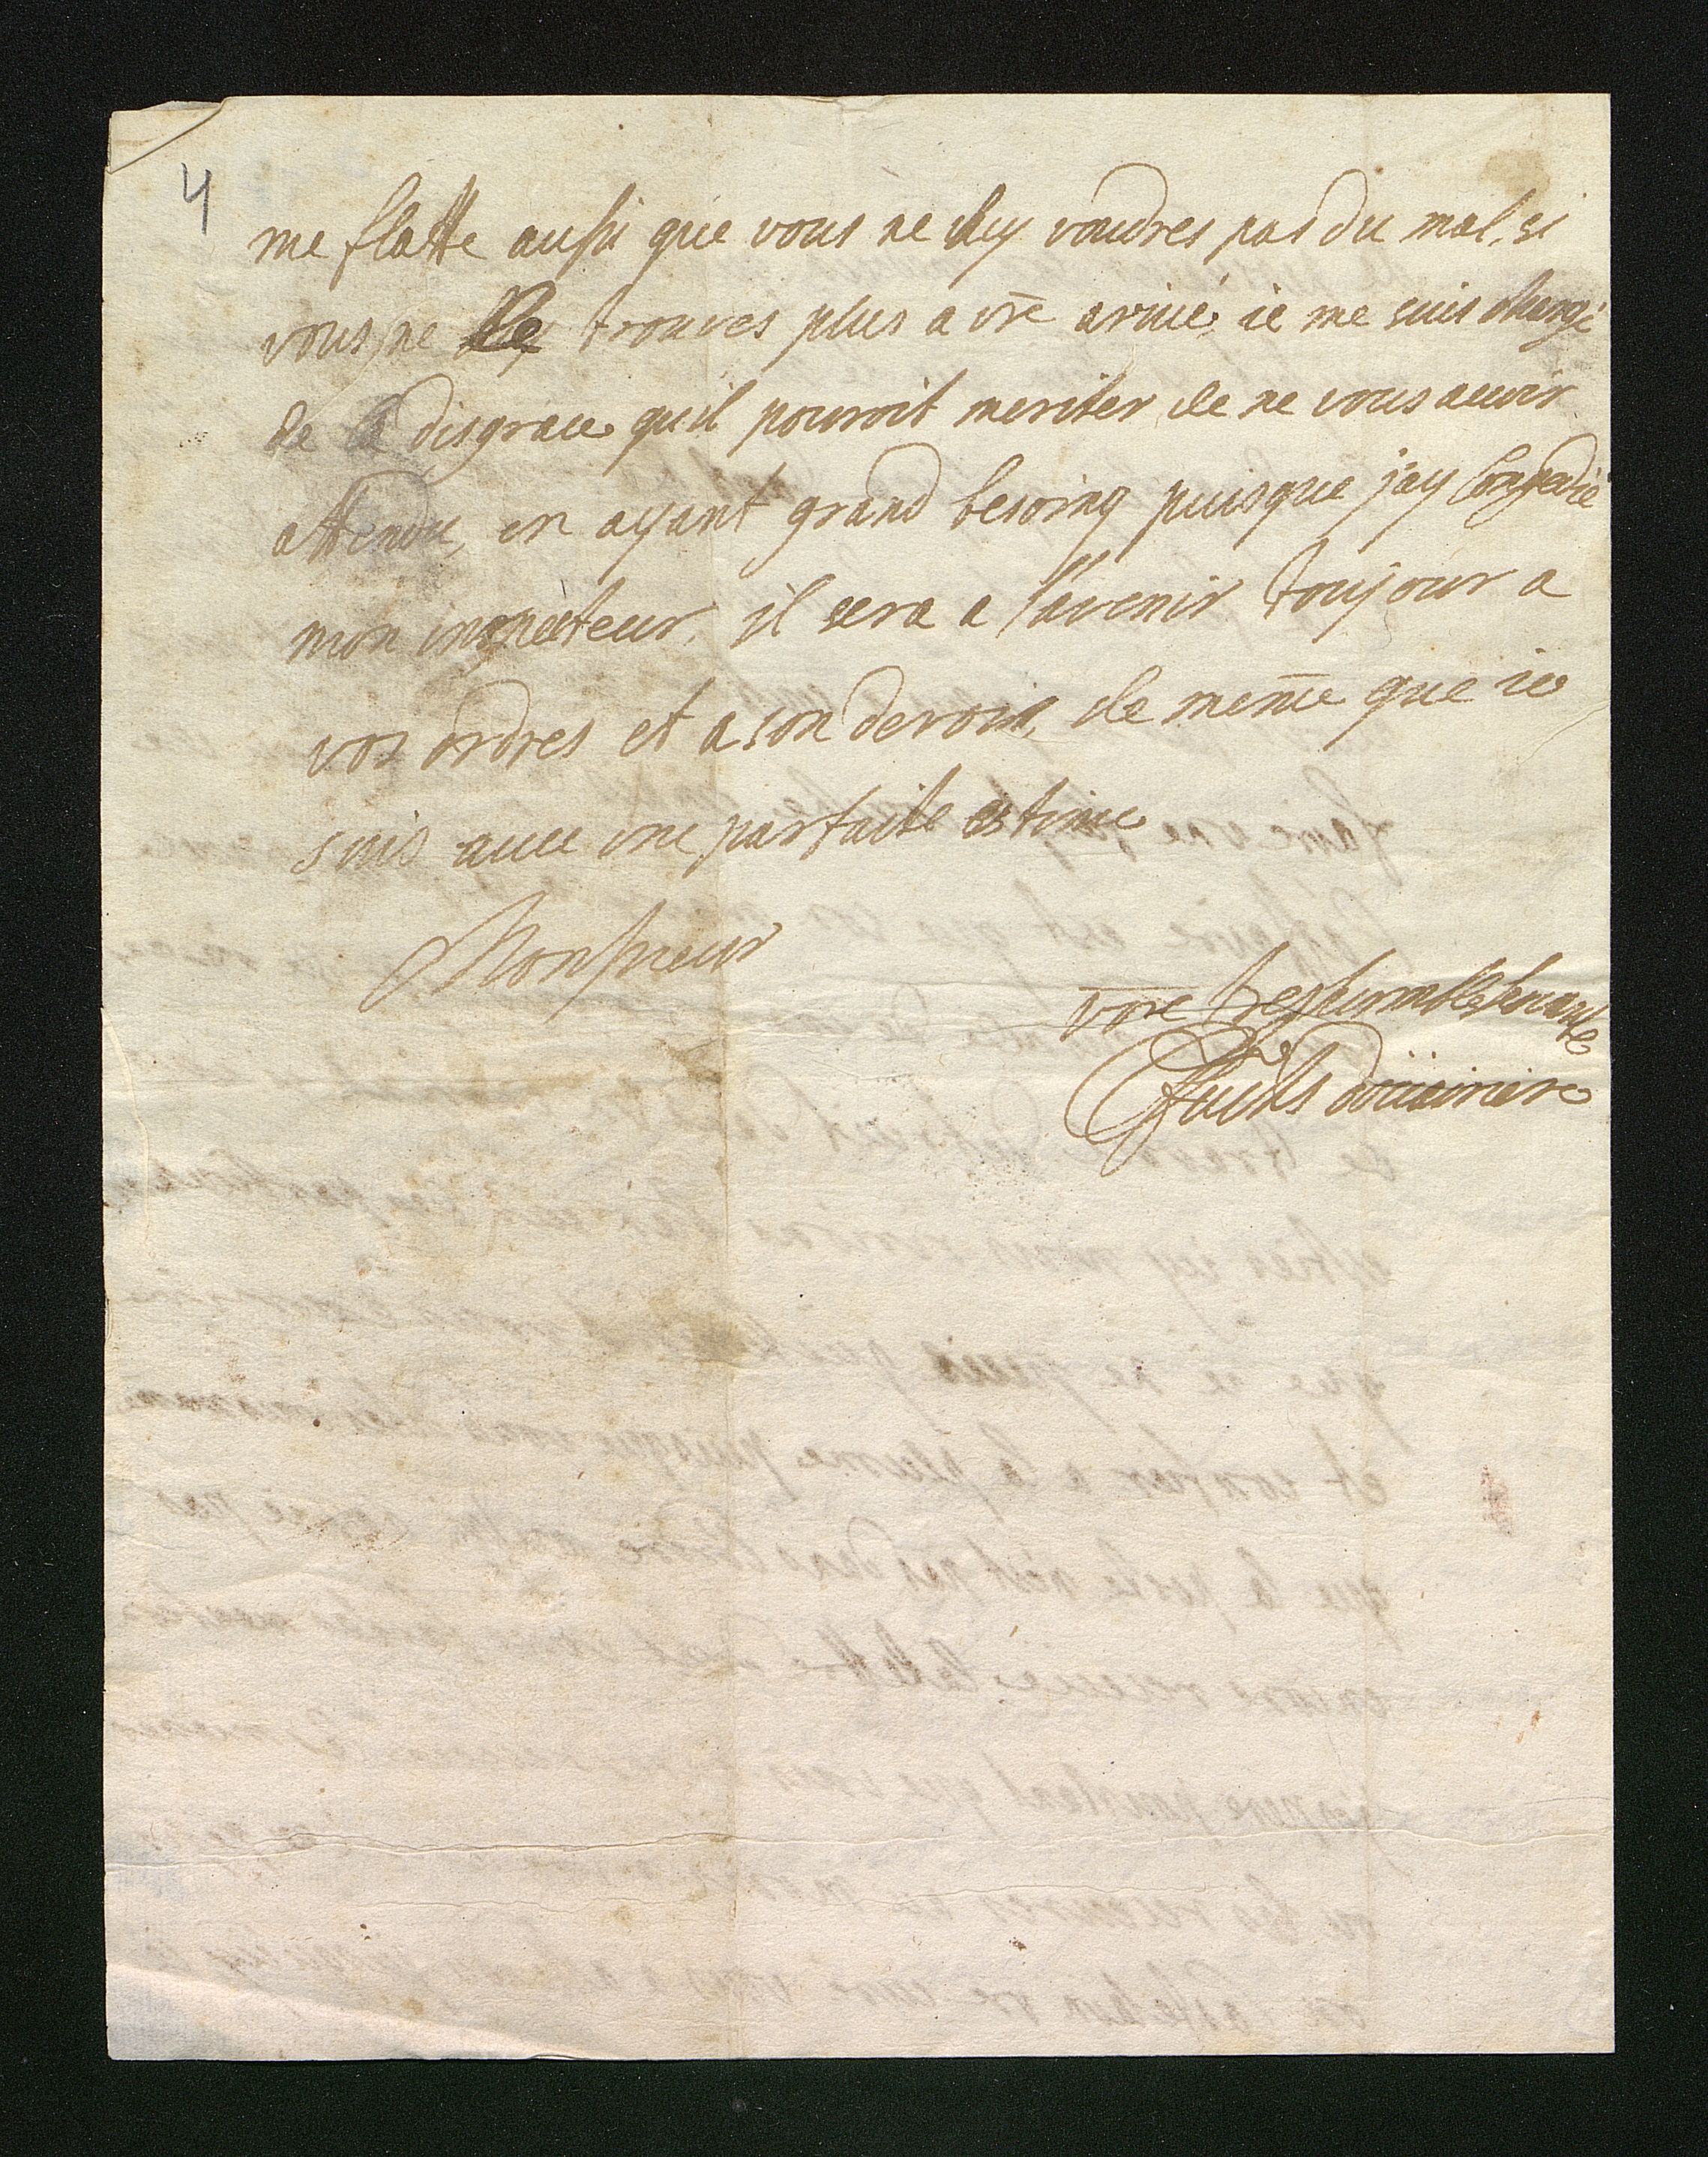 4
me flatte aussi que vous ne luy voudres pas du mal, si
vous ne le trouves plus a vre arivé, ie me suis chargé
de la disgrace qu'il pouroit meriter de ne vous avoir
attendu, en ayant grand besoing puisque j'ay Congedié
mon inspecteur, il sera a l'avenir toujour a
vos ordres et a son devoir, de meme que ie
suis avec une parfaite estime
Monsieur
vore tres humble servante
douairiere